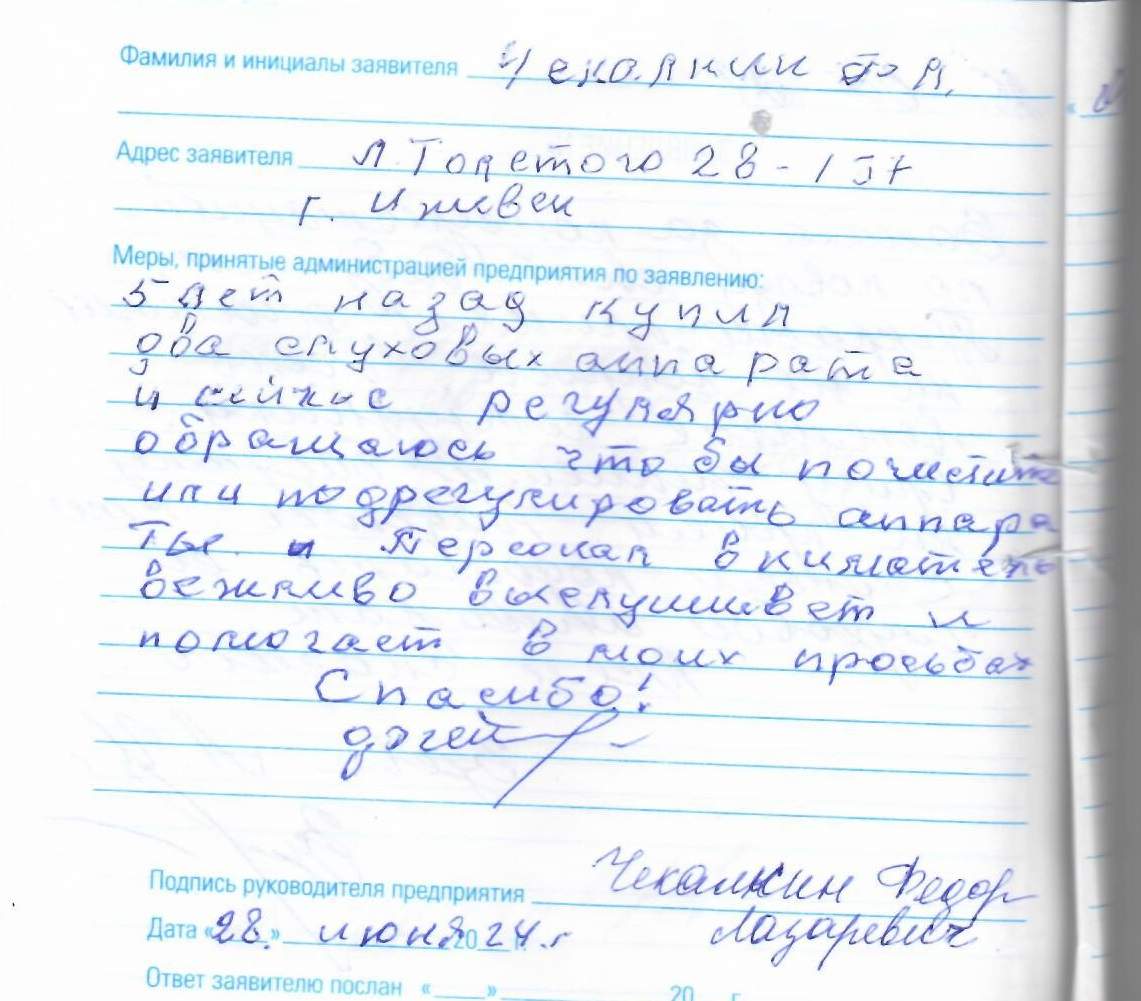 Фамилия и инициалы заявителя Чекалкин Ф Л.
Адрес заявителя Л. Толстого 28 - 157
г. Ижевск
Меры, принятые администрацией предприятия по заявлению:
5 лет назад купил
два слуховых аппарата
и сейчас регулярно
обращаюсь что бы почистить
или подрегулировать аппара
ты. и Персонал внимательно
вежливо выслушивает и
помогает в моих просьбах
Спасибо!
Подпись руководителя предприятия Чекалкин Федор
Лазаревич
Дата «28» июня 2024 г
Ответ заявителю послан «____» ________ 20__ г